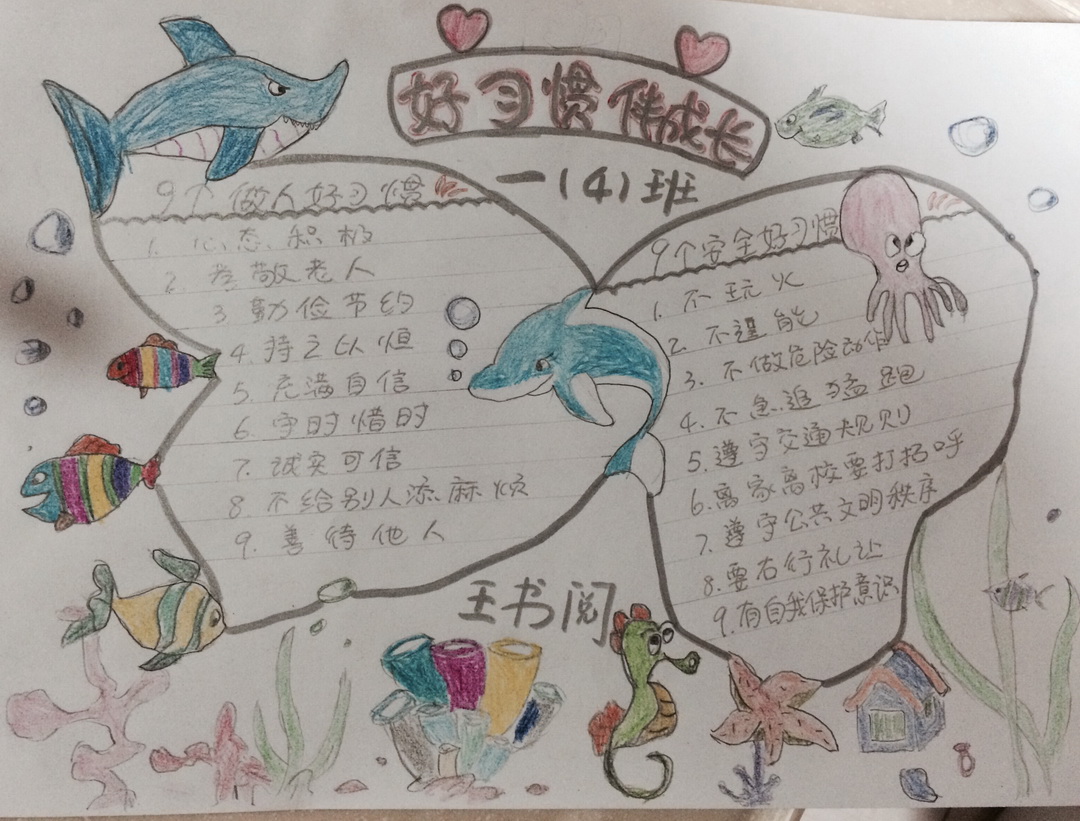 好习惯伴成长
一(4)班
9个做人好习惯
1. 心态积极
2. 孝敬老人
3 勤俭节约
4. 持之以恒
5. 充满自信
6. 守时惜时
7. 诚实可信
8 不给别人添麻烦
9. 善待他人
9个安全好习惯
1. 不玩火
2. 不逞能
3. 不做危险动作
4. 不急追猛跑
5. 遵守交通规则
6. 离家离校要打招呼
7. 遵守公共文明秩序
8. 要右行礼让
9. 有自我保护意识
王书阅